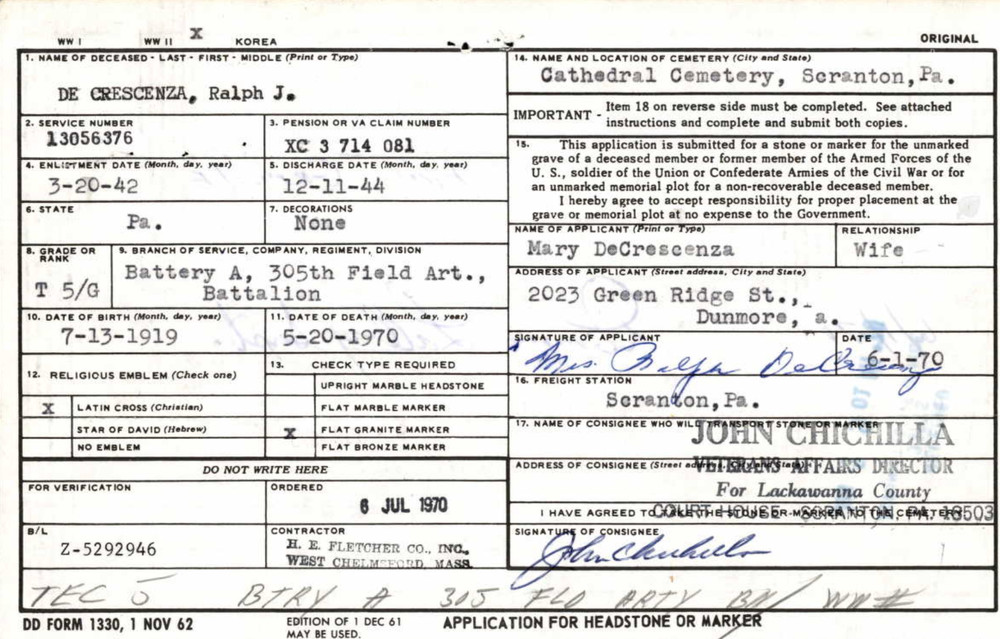 WW I WW II X KOREA ORIGINAL
1. NAME OF DECEASED - LAST - FIRST - MIDDLE (Print or Type)
DE CRESCENZA, Ralph J.
14. NAME AND LOCATION OF CEMETERY (City and State)
Cathedral Cemetery, Scranton, Pa.
IMPORTANT - Item 18 on reverse side must be completed. See attached
instructions and complete and submit both copies.
2. SERVICE NUMBER
13056376
3. PENSION OR VA CLAIM NUMBER
XC 3 714 081
15. This application is submitted for a stone or marker for the unmarked
grave of a deceased member or former member of the Armed Forces of the
U. S., soldier of the Union or Confederate Armies of the Civil War or for
an unmarked memorial plot for a non-recoverable deceased member.
I hereby agree to accept responsibility for proper placement at the
grave or memorial plot at no expense to the Government.
4. ENLISTMENT DATE (Month, day, year)
3-20-42
5. DISCHARGE DATE (Month, day, year)
12-11-44
6. STATE
Pa.
7. DECORATIONS
None
NAME OF APPLICANT (Print or Type)
Mary DeCrescenza
RELATIONSHIP
Wife
8. GRADE OR
RANK
T 5/G
9. BRANCH OF SERVICE, COMPANY, REGIMENT, DIVISION
Battery A, 305th Field Art.,
Battalion
ADDRESS OF APPLICANT (Street address, City and State)
2023 Green Ridge St.,
Dunmore, a.
10. DATE OF BIRTH (Month, day, year)
7-13-1919
11. DATE OF DEATH (Month, day, year)
5-20-1970
SIGNATURE OF APPLICANT
Mrs. Ralph DeCrescenza
DATE
6-1-70
12. RELIGIOUS EMBLEM (Check one)
X LATIN CROSS (Christian)
STAR OF DAVID (Hebrew)
NO EMBLEM
13. CHECK TYPE REQUIRED
UPRIGHT MARBLE HEADSTONE
FLAT MARBLE MARKER
X FLAT GRANITE MARKER
FLAT BRONZE MARKER
16. FREIGHT STATION
Scranton, Pa.
17. NAME OF CONSIGNEE WHO WILL TRANSPORT STONE OR MARKER
JOHN CHICHILLA
ADDRESS OF CONSIGNEE (Street address, City and State)
VETERANS AFFAIRS DIRECTOR
For Lackawanna County
I HAVE AGREED TO TAKE THE STONE OR MARKER TO THE CEMETERY
COURT HOUSE - SCRANTON, PA. 18503
DO NOT WRITE HERE
FOR VERIFICATION
ORDERED
6 JUL 1970
B/L
Z-5292946
CONTRACTOR
H. E. FLETCHER CO., INC.,
WEST CHELMSFORD, MASS.
SIGNATURE OF CONSIGNEE
John Chichilla
TEC 5 BTRY A 305 FLD ARTY BN WW II
DD FORM 1330, 1 NOV 62 EDITION OF 1 DEC 61
MAY BE USED.
APPLICATION FOR HEADSTONE OR MARKER